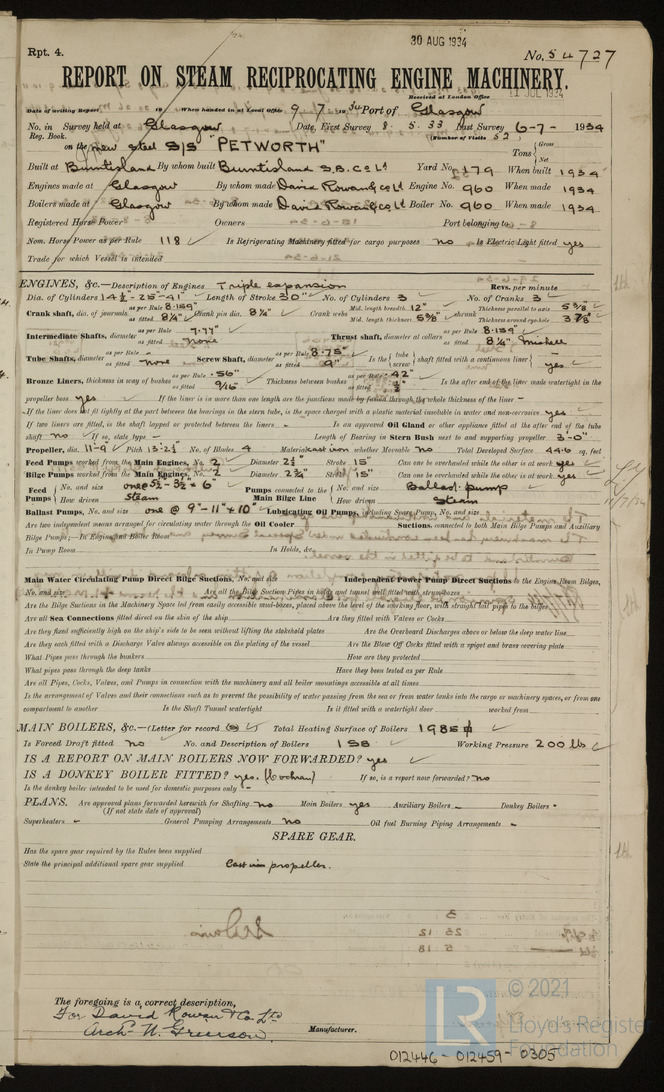 30 AUG 1934
Rpt. 4. No. 54727
REPORT ON STEAM RECIPROCATING ENGINE MACHINERY.
Received at London Office 11 JUL 1934
Date of writing Report 19 When handed in at Local Office 9. 7. 1934 Port of Glasgow
No. in Survey held at Glasgow Date, First Survey 8. 5. 33 Last Survey 6-7- 1934
Reg. Book. (Number of Visits 52)
on the new steel S/S "PETWORTH" Tons { Gross Net
Built at Burntisland By whom built Burntisland S.B. Co Ld Yard No. 179 When built 1934
Engines made at Glasgow By whom made David Rowan & Co Ld Engine No. 960 When made 1934
Boilers made at Glasgow By whom made David Rowan & Co Ld Boiler No. 960 When made 1934
Registered Horse Power Owners Port belonging to
Nom. Horse Power as per Rule 118 Is Refrigerating Machinery fitted for cargo purposes no Is Electric Light fitted yes
Trade for which Vessel is intended
ENGINES, &c.—Description of Engines Triple expansion Revs. per minute
Dia. of Cylinders 14½ - 25 - 41" Length of Stroke 30" No. of Cylinders 3 No. of Cranks 3
Crank shaft, dia. of journals as per Rule 8.159" as fitted 8¼" Crank pin dia. 8¼" Crank webs Mid. length breadth 12" Mid. length thickness 5⅜" shrunk Thickness parallel to axis 5⅜" Thickness around eye-hole 3⅞"
Intermediate Shafts, diameter as per Rule 7.77" as fitted none Thrust shaft, diameter at collars as per Rule 8.159" as fitted 8¼" Michell
Tube Shafts, diameter as per Rule - as fitted none Screw Shaft, diameter as per Rule 8.75" as fitted 9" Is the { tube screw } shaft fitted with a continuous liner { - yes
Bronze Liners, thickness in way of bushes as per Rule .56" as fitted 9/16" Thickness between bushes as per Rule .42" as fitted ½" Is the after end of the liner made watertight in the
propeller boss yes If the liner is in more than one length are the junctions made by fusion through the whole thickness of the liner -
If the liner does not fit tightly at the part between the bearings in the stern tube, is the space charged with a plastic material insoluble in water and non-corrosive yes
If two liners are fitted, is the shaft lapped or protected between the liners - Is an approved Oil Gland or other appliance fitted at the after end of the tube
shaft no If so, state type - Length of Bearing in Stern Bush next to and supporting propeller 3'-0"
Propeller, dia. 11-9" Pitch 13-2½" No. of Blades 4 Material cast iron whether Moveable no Total Developed Surface 44.6 sq. feet
Feed Pumps worked from the Main Engines, No. 2 Diameter 2½" Stroke 15" Can one be overhauled while the other is at work yes
Bilge Pumps worked from the Main Engines, No. 2 Diameter 2¾" Stroke 15" Can one be overhauled while the other is at work yes
Feed Pumps { No. and size one @ 5½ - 3½ × 6" How driven steam Pumps connected to the Main Bilge Line { No. and size Ballast pump How driven Steam
Ballast Pumps, No. and size one @ 9" - 11" × 10" Lubricating Oil Pumps, including Spare Pump, No. and size
Are two independent means arranged for circulating water through the Oil Cooler Suctions, connected to both Main Bilge Pumps and Auxiliary
Bilge Pumps;—In Engine and Boiler Room
In Pump Room In Holds, &c.
Main Water Circulating Pump Direct Bilge Suctions, No. and size Independent Power Pump Direct Suctions to the Engine Room Bilges,
No. and size Are all the Bilge Suction Pipes in holds and tunnel well fitted with strum-boxes
Are the Bilge Suctions in the Machinery Space led from easily accessible mud-boxes, placed above the level of the working floor, with straight tail pipes to the bilges
Are all Sea Connections fitted direct on the skin of the ship Are they fitted with Valves or Cocks
Are they fixed sufficiently high on the ship's side to be seen without lifting the stokehold plates Are the Overboard Discharges above or below the deep water line
Are they each fitted with a Discharge Valve always accessible on the plating of the vessel Are the Blow Off Cocks fitted with a spigot and brass covering plate
What Pipes pass through the bunkers How are they protected
What pipes pass through the deep tanks Have they been tested as per Rule
Are all Pipes, Cocks, Valves, and Pumps in connection with the machinery and all boiler mountings accessible at all times
Is the arrangement of Valves and their connections such as to prevent the possibility of water passing from the sea or from water tanks into the cargo or machinery spaces, or from one
compartment to another Is the Shaft Tunnel watertight Is it fitted with a watertight door worked from
MAIN BOILERS, &c.—(Letter for record (S)) Total Heating Surface of Boilers 1985
Is Forced Draft fitted no No. and Description of Boilers 1 SB Working Pressure 200 lb
IS A REPORT ON MAIN BOILERS NOW FORWARDED? yes
IS A DONKEY BOILER FITTED? yes. (Cochran) If so, is a report now forwarded? no
Is the donkey boiler intended to be used for domestic purposes only -
PLANS. Are approved plans forwarded herewith for Shafting no Main Boilers yes Auxiliary Boilers - Donkey Boilers -
(If not state date of approval)
Superheaters - General Pumping Arrangements no Oil fuel Burning Piping Arrangements -
SPARE GEAR.
Has the spare gear required by the Rules been supplied
State the principal additional spare gear supplied Cast iron propeller.
The foregoing is a correct description,
For David Rowan & Co. Ltd
Archd. W. Grierson. Manufacturer.
© 2021
LR Lloyd's Register
Foundation
012446 - 012459 - 0305